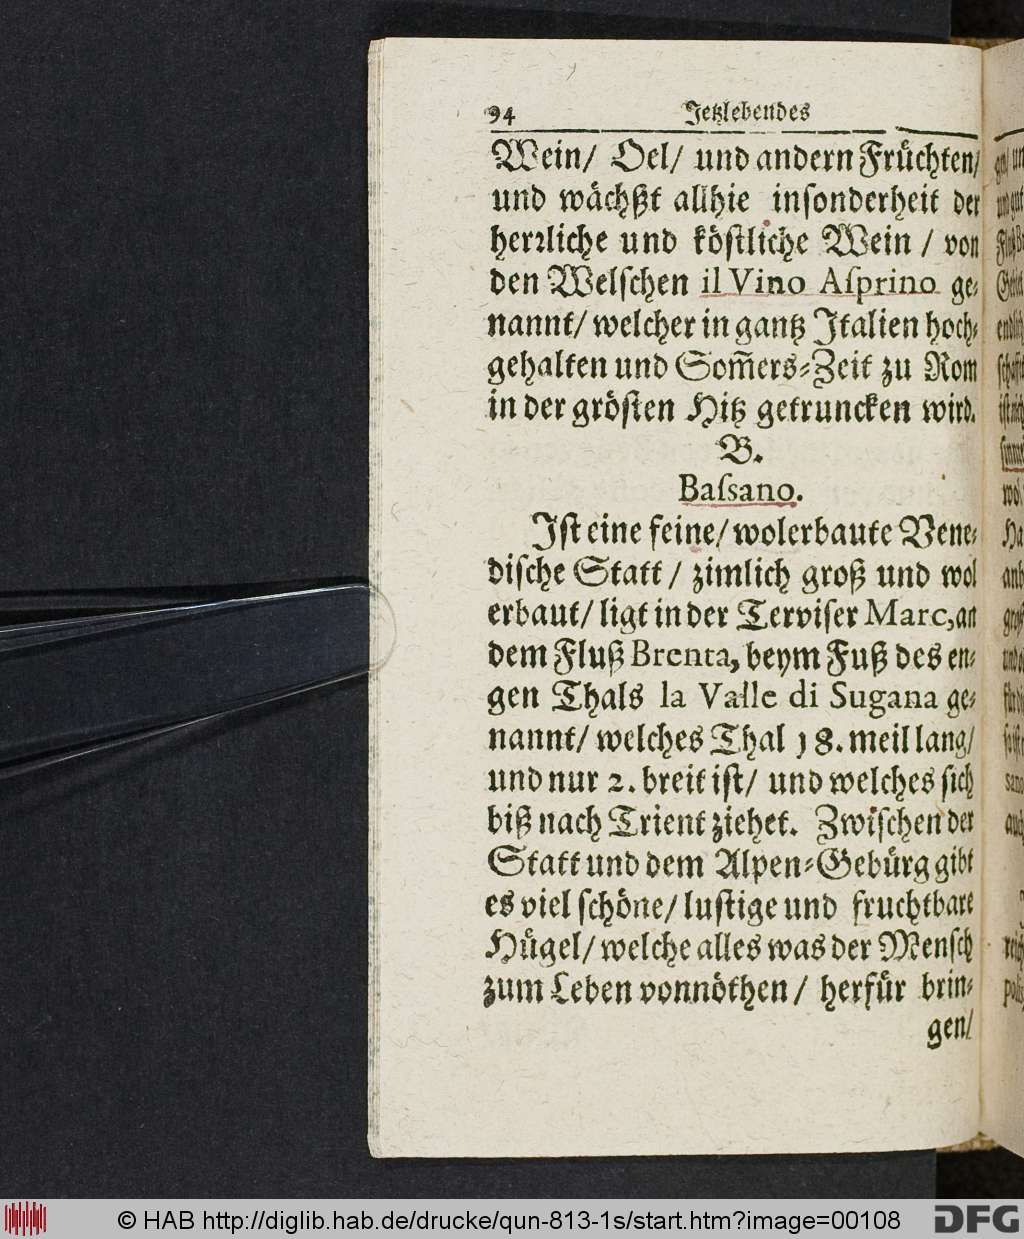 94 Jetzlebendes
Wein/ Oel/ und andern Früchten/
und wächßt allhie insonderheit der
herꝛliche und köstliche Wein / von
den Welschen il Vino Aſprino ge-
nannt/ welcher in gantz Italien hoch-
gehalten und Som̃ers-Zeit zu Rom
in der grösten Hitz getruncken wird.
B.
Baſsano.
Ist eine feine/ wolerbaute Vene-
dische Statt / zimlich groß und wol
erbaut/ ligt in der Terviser Marc, an
dem Fluß Brenta, beym Fuß des en-
gen Thals la Valle di Sugana ge-
nannt/ welches Thal 18. meil lang/
und nur 2. breit ist/ und welches sich
biß nach Trient ziehet. Zwischen der
Statt und dem Alpen-Gebürg gibt
es viel schöne/ lustige und fruchtbare
Hügel/ welche alles was der Mensch
zum Leben vonnöthen / herfür brin-
gen/
© HAB http://diglib.hab.de/drucke/qun-813-1s/start.htm?image=00108 DFG